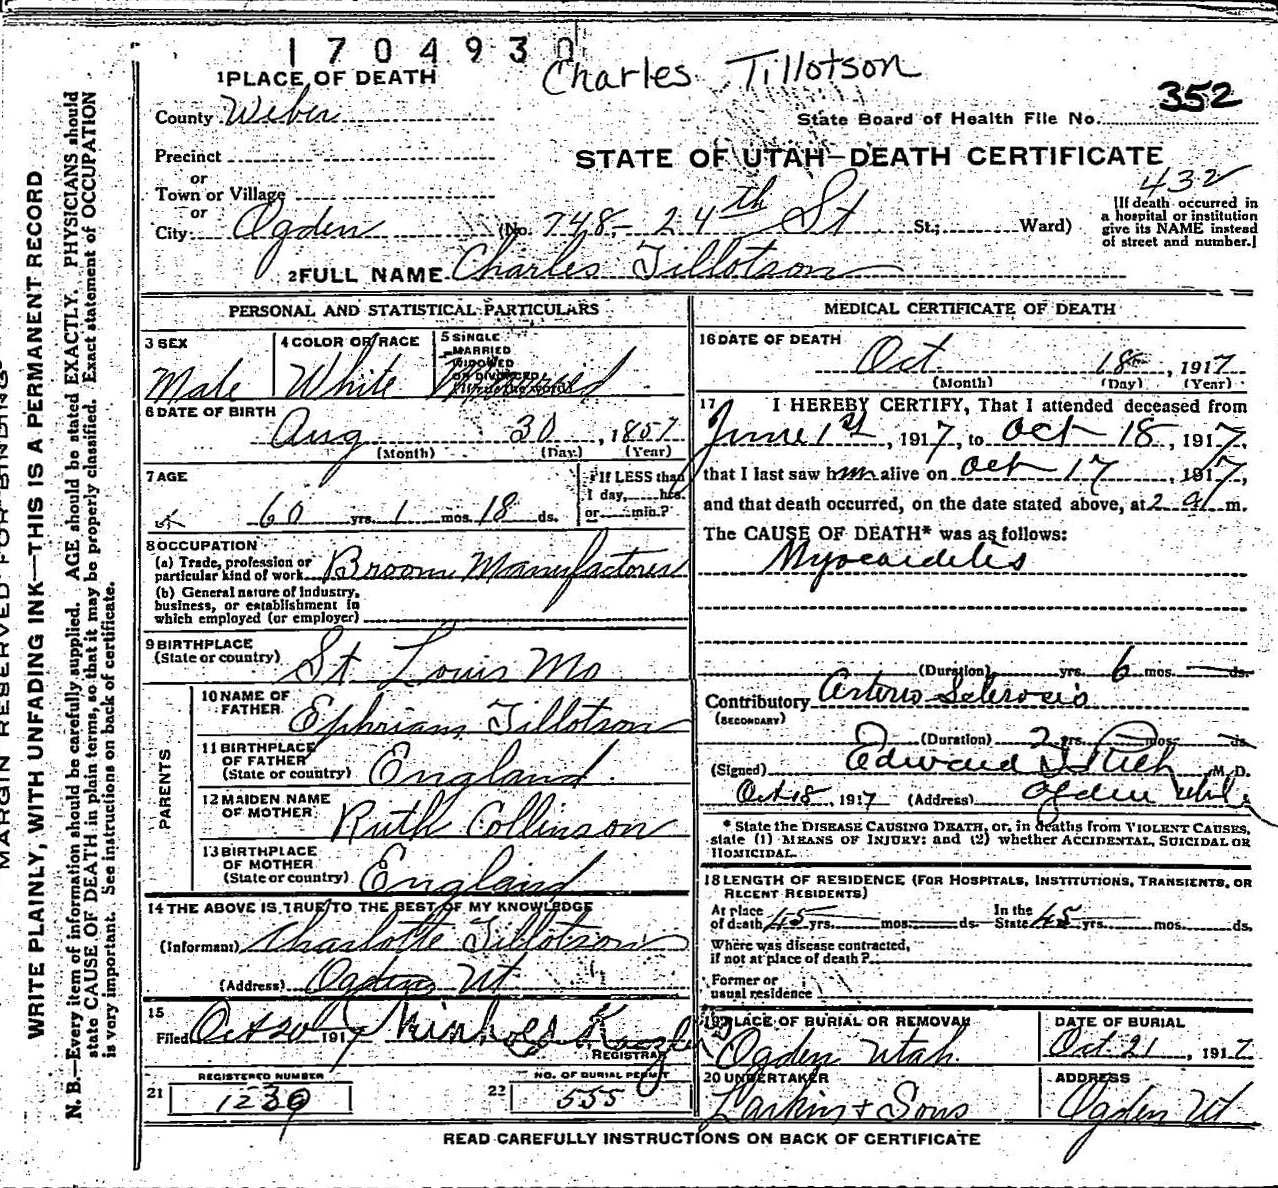 1704930
Charles Tillotson
1 PLACE OF DEATH
352
County Weber
State Board of Health File No.
Precinct
or
STATE OF UTAH—DEATH CERTIFICATE
Town or Village
or
432
City Ogden (No. 748 - 24th St St.; Ward)
[If death occurred in
a hospital or institution
give its NAME instead
of street and number.]
2 FULL NAME Charles Tillotson
PERSONAL AND STATISTICAL PARTICULARS
3 SEX
Male
4 COLOR OR RACE
White
5 SINGLE
MARRIED
WIDOWED
OR DIVORCED
(Write the word)
6 DATE OF BIRTH
Aug 30, 1857
(Month) (Day) (Year)
7 AGE
60 yrs. 1 mos. 18 ds.
If LESS than
1 day, hrs.
or min.?
8 OCCUPATION
(a) Trade, profession or
particular kind of work Broom Manufacturer
(b) General nature of industry,
business, or establishment in
which employed (or employer)
9 BIRTHPLACE
(State or country) St Louis Mo
PARENTS
10 NAME OF
FATHER Ephriam Tillotson
11 BIRTHPLACE
OF FATHER
(State or country) England
12 MAIDEN NAME
OF MOTHER Ruth Collinson
13 BIRTHPLACE
OF MOTHER
(State or country) England
14 THE ABOVE IS TRUE TO THE BEST OF MY KNOWLEDGE
(Informant) Charlotte Tillotson
(Address) Ogden Ut
15
Filed Oct 20, 1917
REGISTRAR
REGISTERED NUMBER
21 1239
NO. OF BURIAL PERMIT
22 555
MEDICAL CERTIFICATE OF DEATH
16 DATE OF DEATH
Oct 18, 1917
(Month) (Day) (Year)
17 I HEREBY CERTIFY, That I attended deceased from
June 1st, 1917, to Oct 18, 1917,
that I last saw him alive on Oct 17, 1917,
and that death occurred, on the date stated above, at 2 a m.
The CAUSE OF DEATH* was as follows:
Myocarditis
(Duration) yrs. 6 mos. ds.
Contributory Arterio Sclerosis
(SECONDARY)
(Duration) 2 yrs. mos. ds.
(Signed) Edward M. D.
Oct 18, 1917 (Address) Ogden Utah
* State the DISEASE CAUSING DEATH, or, in deaths from VIOLENT CAUSES,
state (1) MEANS OF INJURY; and (2) whether ACCIDENTAL, SUICIDAL OR
HOMICIDAL.
18 LENGTH OF RESIDENCE (FOR HOSPITALS, INSTITUTIONS, TRANSIENTS, OR
RECENT RESIDENTS)
At place
of death 45 yrs. mos. ds.
In the
State 45 yrs. mos. ds.
Where was disease contracted,
if not at place of death?
Former or
usual residence
19 PLACE OF BURIAL OR REMOVAL
Ogden Utah.
DATE OF BURIAL
Oct. 21, 1917
20 UNDERTAKER
Larkin & Sons
ADDRESS
Ogden Ut
READ CAREFULLY INSTRUCTIONS ON BACK OF CERTIFICATE
MARGIN RESERVED FOR BINDING
WRITE PLAINLY, WITH UNFADING INK—THIS IS A PERMANENT RECORD
N. B.—Every item of information should be carefully supplied. AGE should be stated EXACTLY. PHYSICIANS should
state CAUSE OF DEATH in plain terms, so that it may be properly classified. Exact statement of OCCUPATION
is very important. See instructions on back of certificate.